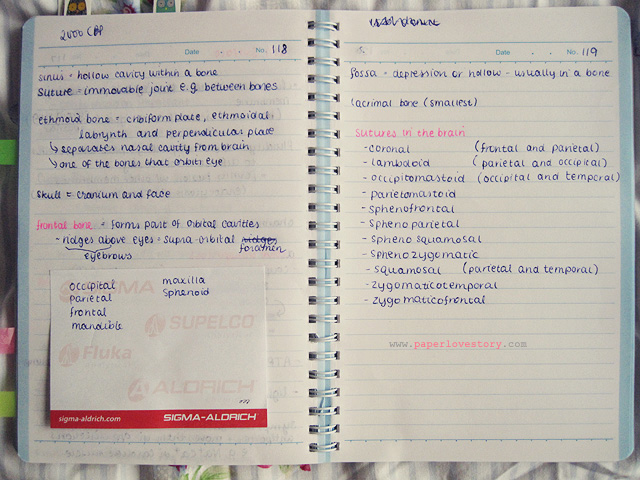 2000 CBP
Date No. 118
sinus = hollow cavity within a bone
suture = immovable joint e.g. between bones
ethmoid bone = cribiform place, ethmoidal
labrynth and perpendicular place
↳ separates nasal cavity from brain
↳ one of the bones that orbit eye
skull = cranium and face
frontal bone = forms part of orbital cavities
- ridges above eyes = supra-orbital ridges
foramen
eyebrows
occipital maxilla
parietal sphenoid
frontal
mandible
SIGMA
SUPELCO
Fluka
ALDRICH
sigma-aldrich.com SIGMA-ALDRICH
Date No. 119
fossa = depression or hollow - usually in a bone
lacrimal bone (smallest)
Sutures in the brain
- coronal (frontal and parietal)
- lambdoid (parietal and occipital)
- occipitomastoid (occipital and temporal)
- parietomastoid
- sphenofrontal
- spheno parietal
- spheno squamosal
- spheno zygomatic
- squamosal (parietal and temporal)
- zygomaticotemporal
- zygomaticofrontal
www.paperlovestory.com